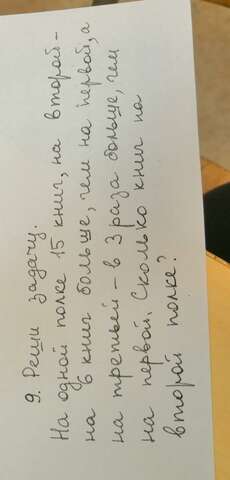 9. Реши задачу.
На одной полке 15 книг, на второй -
на 6 книг больше, чем на первой, а
на третьей - в 3 раза больше, чем
на первой. Сколько книг на
второй полке?